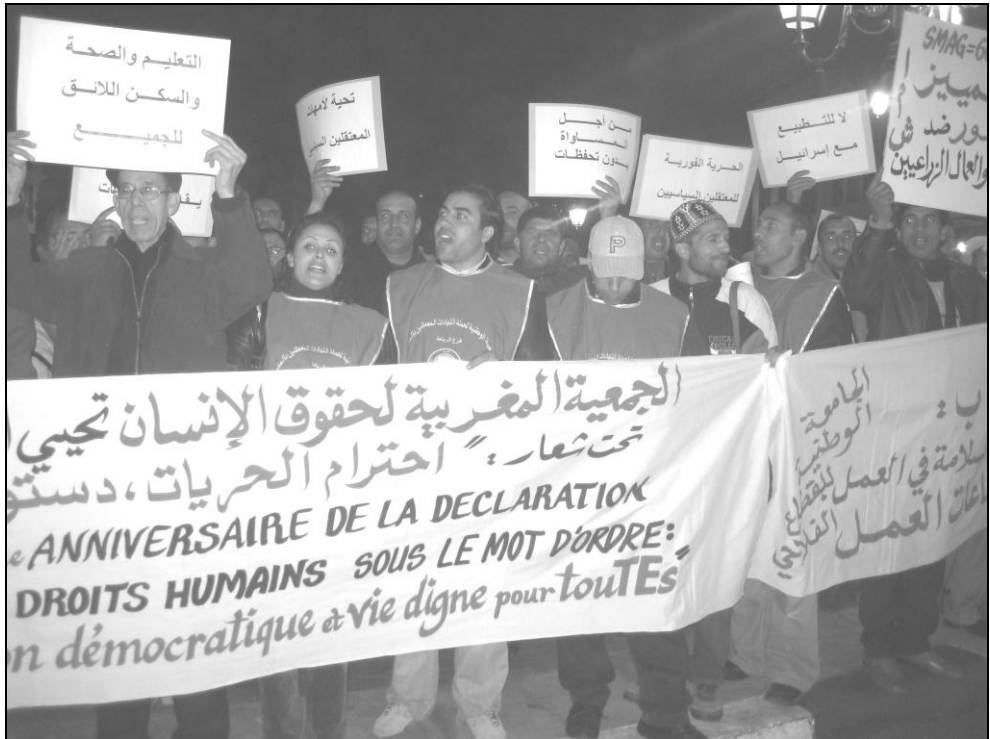 التعليم والصحة
والسكن اللائق
للجميع
تحية لأمهات
المعتقلين
من أجل
المساواة
بدون تحفظات
الحرية الفورية
للمعتقلين السياسيين
لا للتطبيع
مع إسرائيل
SMAG=6
والعمال الزراعيين
P
الجمعية المغربية لحقوق الإنسان تحيي
تحت شعار: " احترام الحريات، دستو
e ANNIVERSAIRE DE LA DECLARATION
DROITS HUMAINS SOUS LE MOT D'ORDRE:
n démocratique et vie digne pour touTEs"
الجامعة
الوطنية
للقطاع
الفلاحي
ب:
سلامة في العمل
العمل